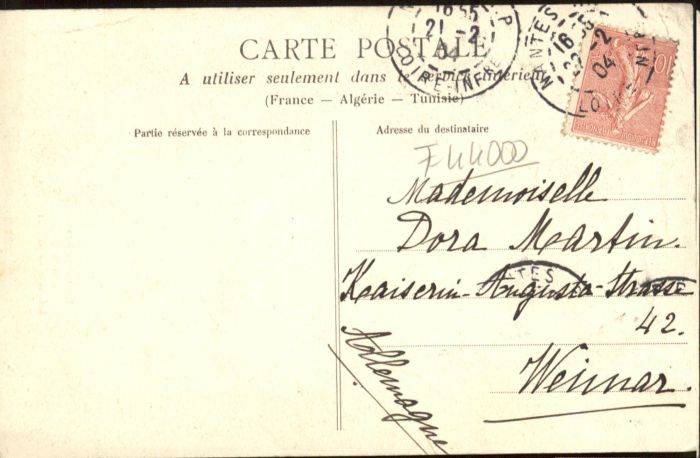 CARTE POSTALE
A utiliser seulement dans le service intérieur
(France — Algérie — Tunisie)
Partie réservée à la correspondance
Adresse du destinataire
F44000
Mademoiselle
Dora Martin.
Kaiserin-Augusta-Strasse
42.
Weimar.
Allemagne
16 55
21-2
04
LOIRE-INFRE
16
-2
04
10